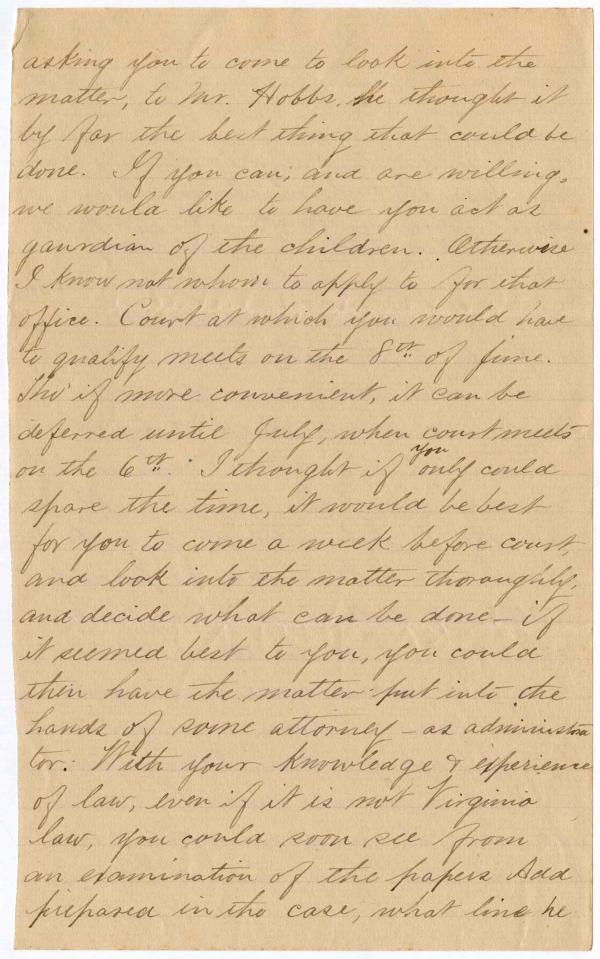 asking you to come to look into the
matter, to Mr. Hobbs, he thought it
by far the best thing that could be
done. If you can, and are willing,
we would like to have you act as
gaurdian of the children. Otherwise
I know not whom to apply to for that
office. Court at which you would have
to qualify meets on the 8th of June.
Tho' if more convenient, it can be
deferred until July, when court meets
on the 6th. I thought if you only could
spare the time, it would be best
for you to come a week before court,
and look into the matter thoroughly,
and decide what can be done - if
it seemed best to you, you could
then have the matter put into the
hands of some attorney - as administra
tor. With your knowledge & experience
of law, even if it is not Virginia
law, you could soon see from
an examination of the papers Add
prepared in the case, what line he